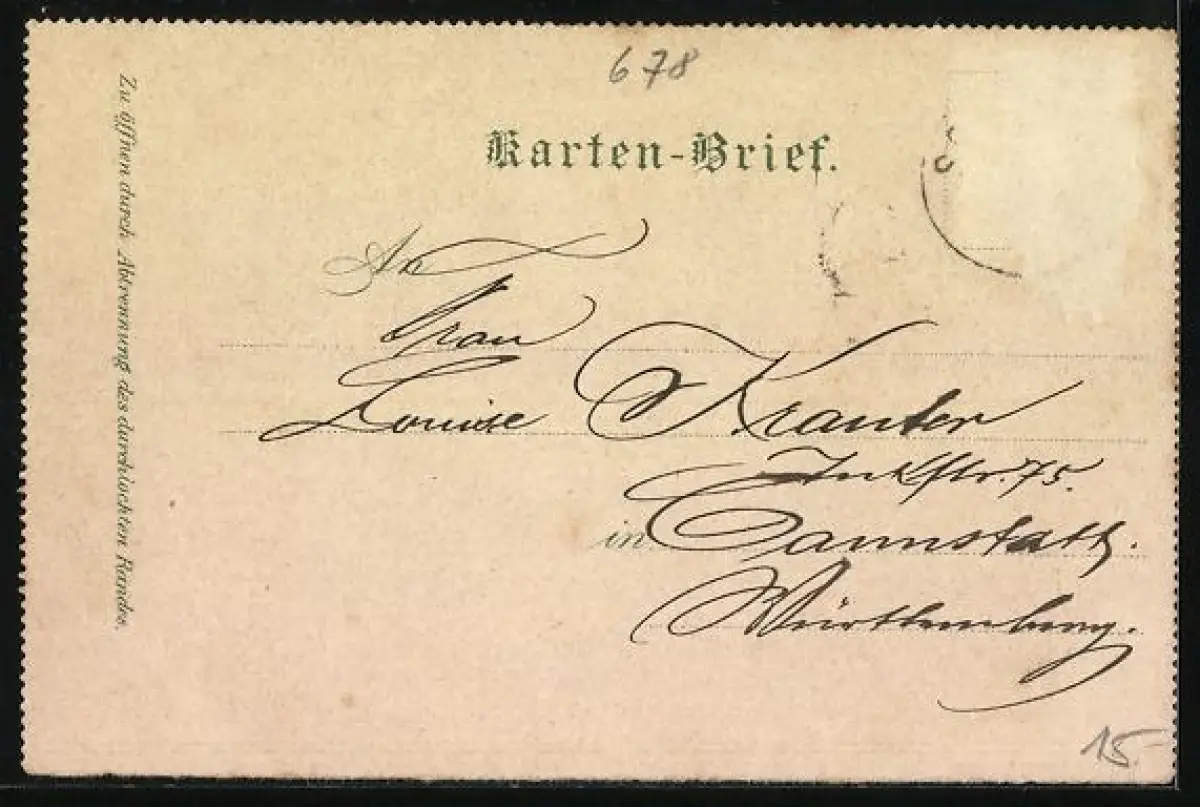 678
Karten-Brief.
An
Frau
Louise Krauter
str. 75.
in Cannstatt.
Württemberg.
15.-
Zu öffnen durch Abtrennung des durchlochten Randes.